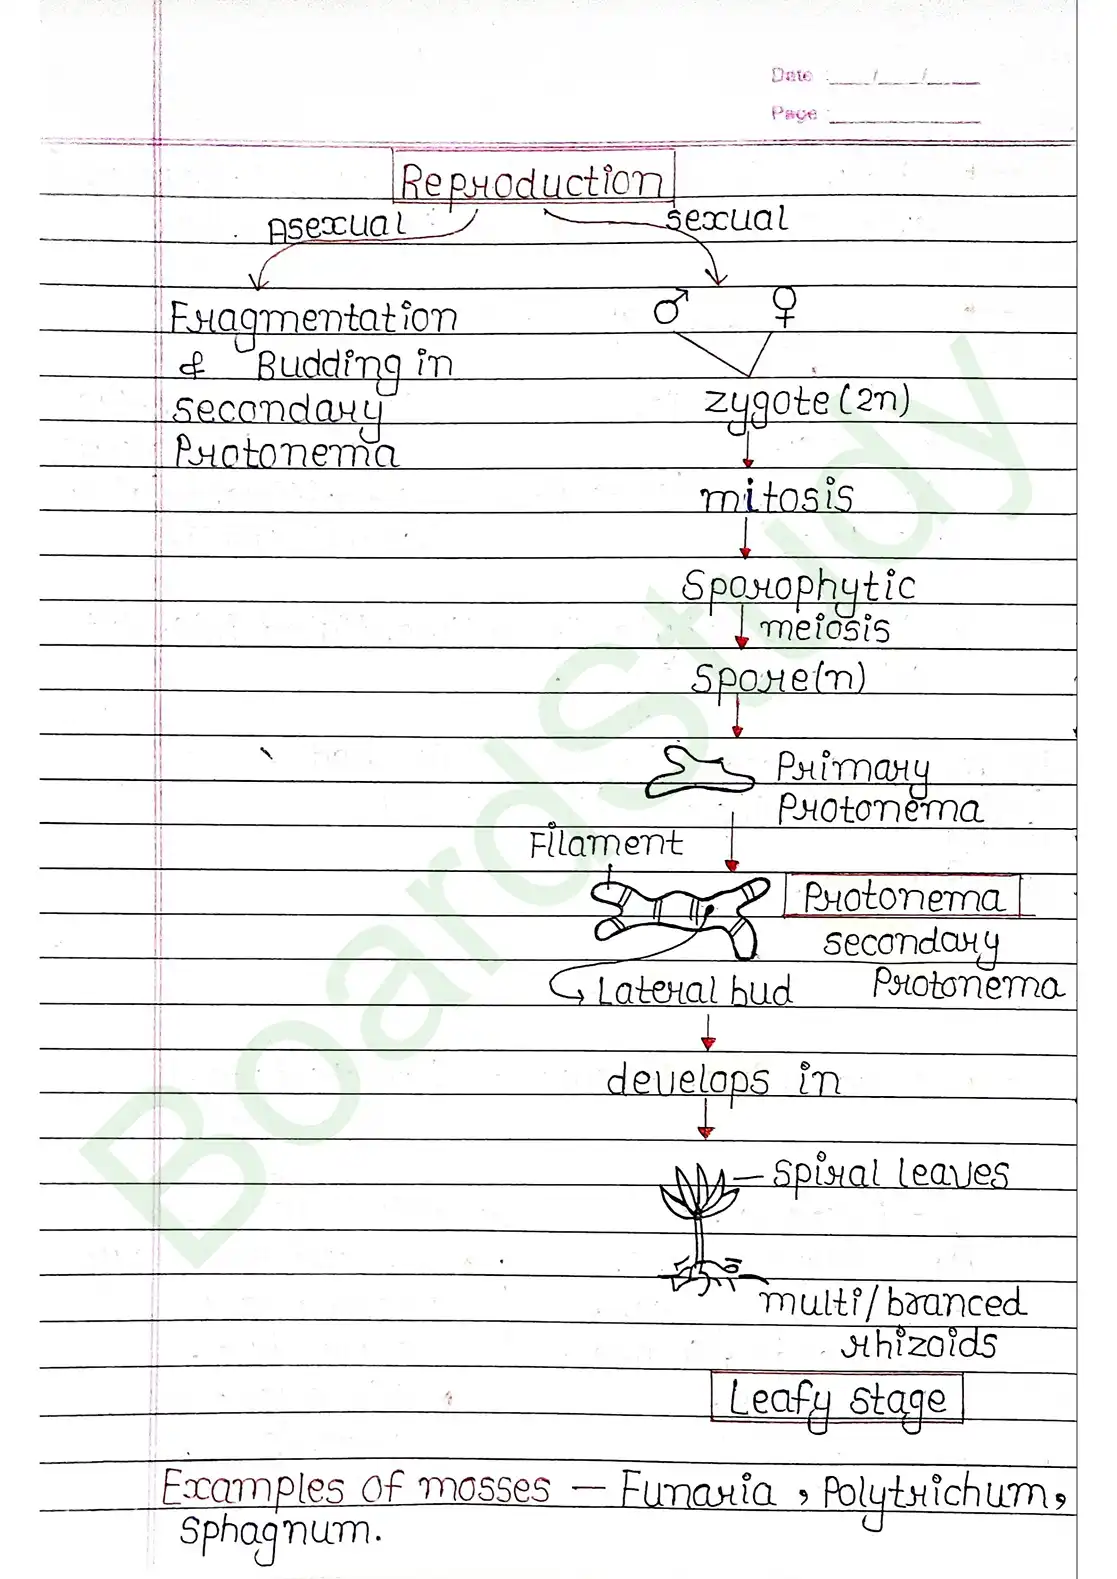 Date : __/__/__
Page :
Reproduction
Asexual
sexual
Fragmentation
& Budding in
secondary
Protonema
♂ ♀
zygote (2n)
mitosis
Sporophytic
meiosis
Spore(n)
Primary
Protonema
Filament
Protonema
secondary
Protonema
Lateral bud
develops in
spiral leaves
multi/branced
rhizoids
Leafy stage
Examples of mosses — Funaria, Polytrichum,
Sphagnum.
BoardStudy